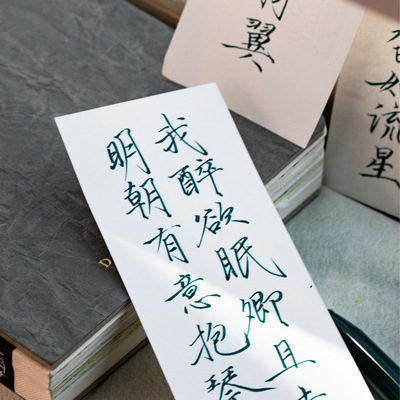 我醉欲眠卿且
明朝有意抱琴
翼
如流星
D